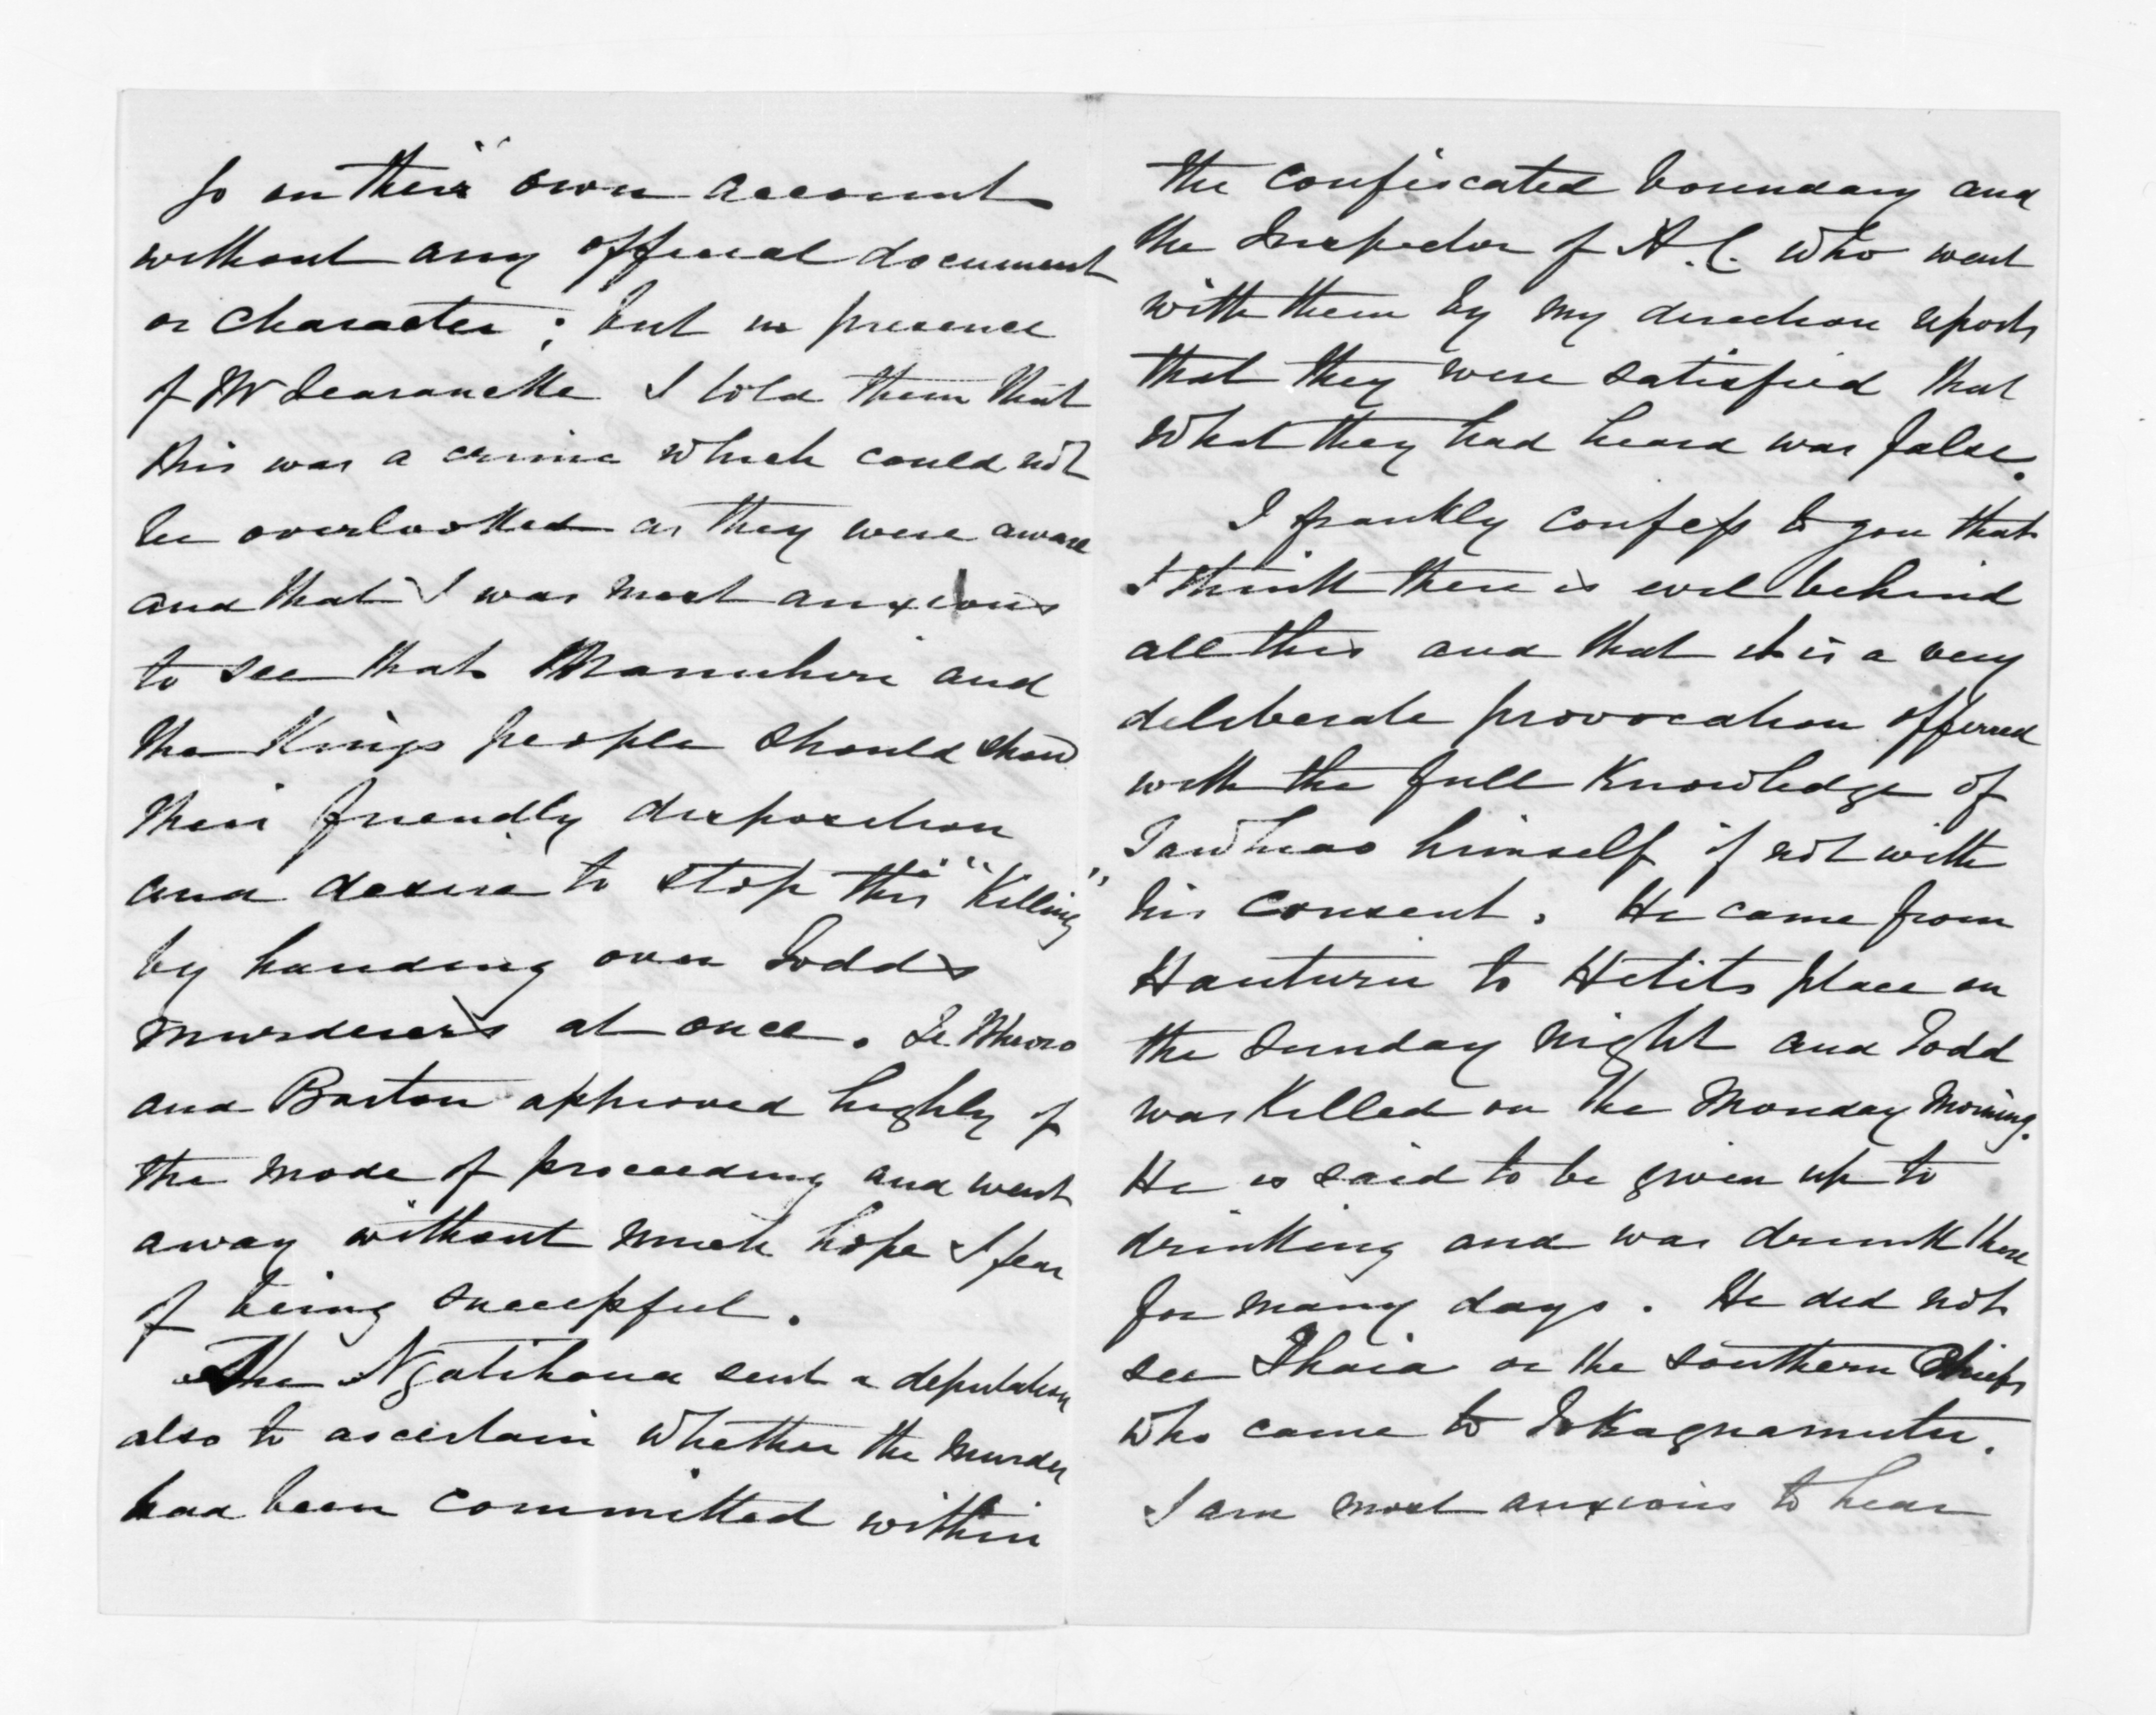 go on their own account
without any official document
or character; but in presence
of Mr Searancke I told them that
this was a crime which could not
be overlooked as they were aware
and that I was most anxious
to see that Manuhiri and
the Kings people should show
their friendly disposition
and desire to stop this "Killing"
by handing over Todds
murderers at once. Te Wheoro
and Barton approved highly of
the mode of proceeding and went
away without much hope I fear
of being successful.
The Ngatihaua sent a deputation
also to ascertain whether the murder
had been committed within
the confiscated boundary and
the Inspector of A.C. who went
with them by my direction reports
that they were satisfied that
what they had heard was false.
I frankly confess to you that
I think there is evil behind
all this and that it is a very
deliberate provocation offerred
with the full Knowledge of
Tawhiao himself if not with
his consent. He came from
Hauturu to Hetits place on
the Sunday night and Todd
was Killed on the Monday Morning.
He is said to be given up to
drinking and was drunk there
for many days. He did not
see Ihaia or the southern Chiefs
who came to Tokagnamutu.
I am most anxious to hear